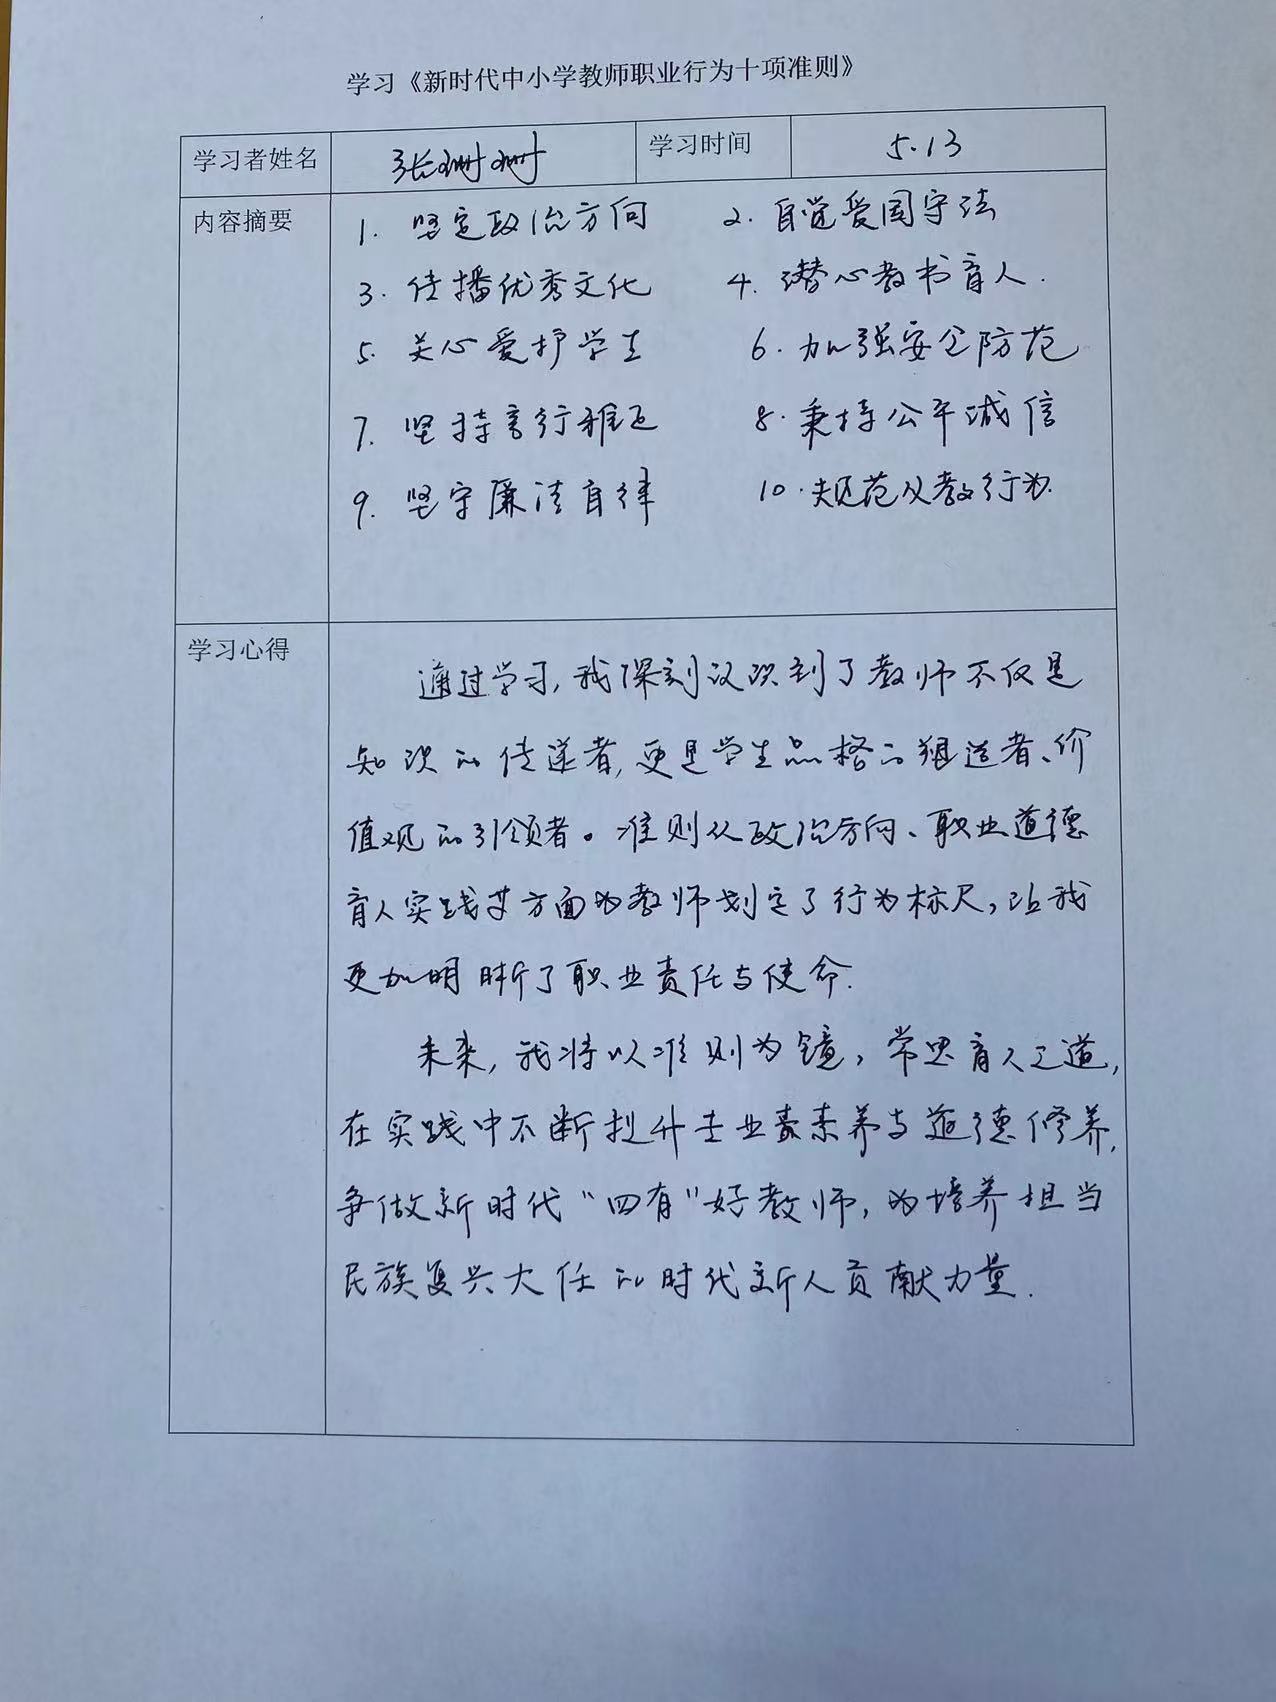 学习《新时代中小学教师职业行为十项准则》
学习者姓名 张珊珊 学习时间 5.13
内容摘要
1. 坚定政治方向 2. 自觉爱国守法
3. 传播优秀文化 4. 潜心教书育人.
5. 关心爱护学生 6. 加强安全防范
7. 坚持言行雅正 8. 秉持公平诚信
9. 坚守廉洁自律 10. 规范从教行为.
学习心得
通过学习,我深刻认识到了教师不仅是
知识的传递者,更是学生品格的锻造者、价
值观的引领者。准则从政治方向、职业道德
育人实践等方面为教师划定了行为标尺,让我
更加明晰了职业责任与使命.
未来,我将以准则为镜,常思育人之道,
在实践中不断提升专业素养与道德修养,
争做新时代“四有”好教师,为培养担当
民族复兴大任的时代新人贡献力量.